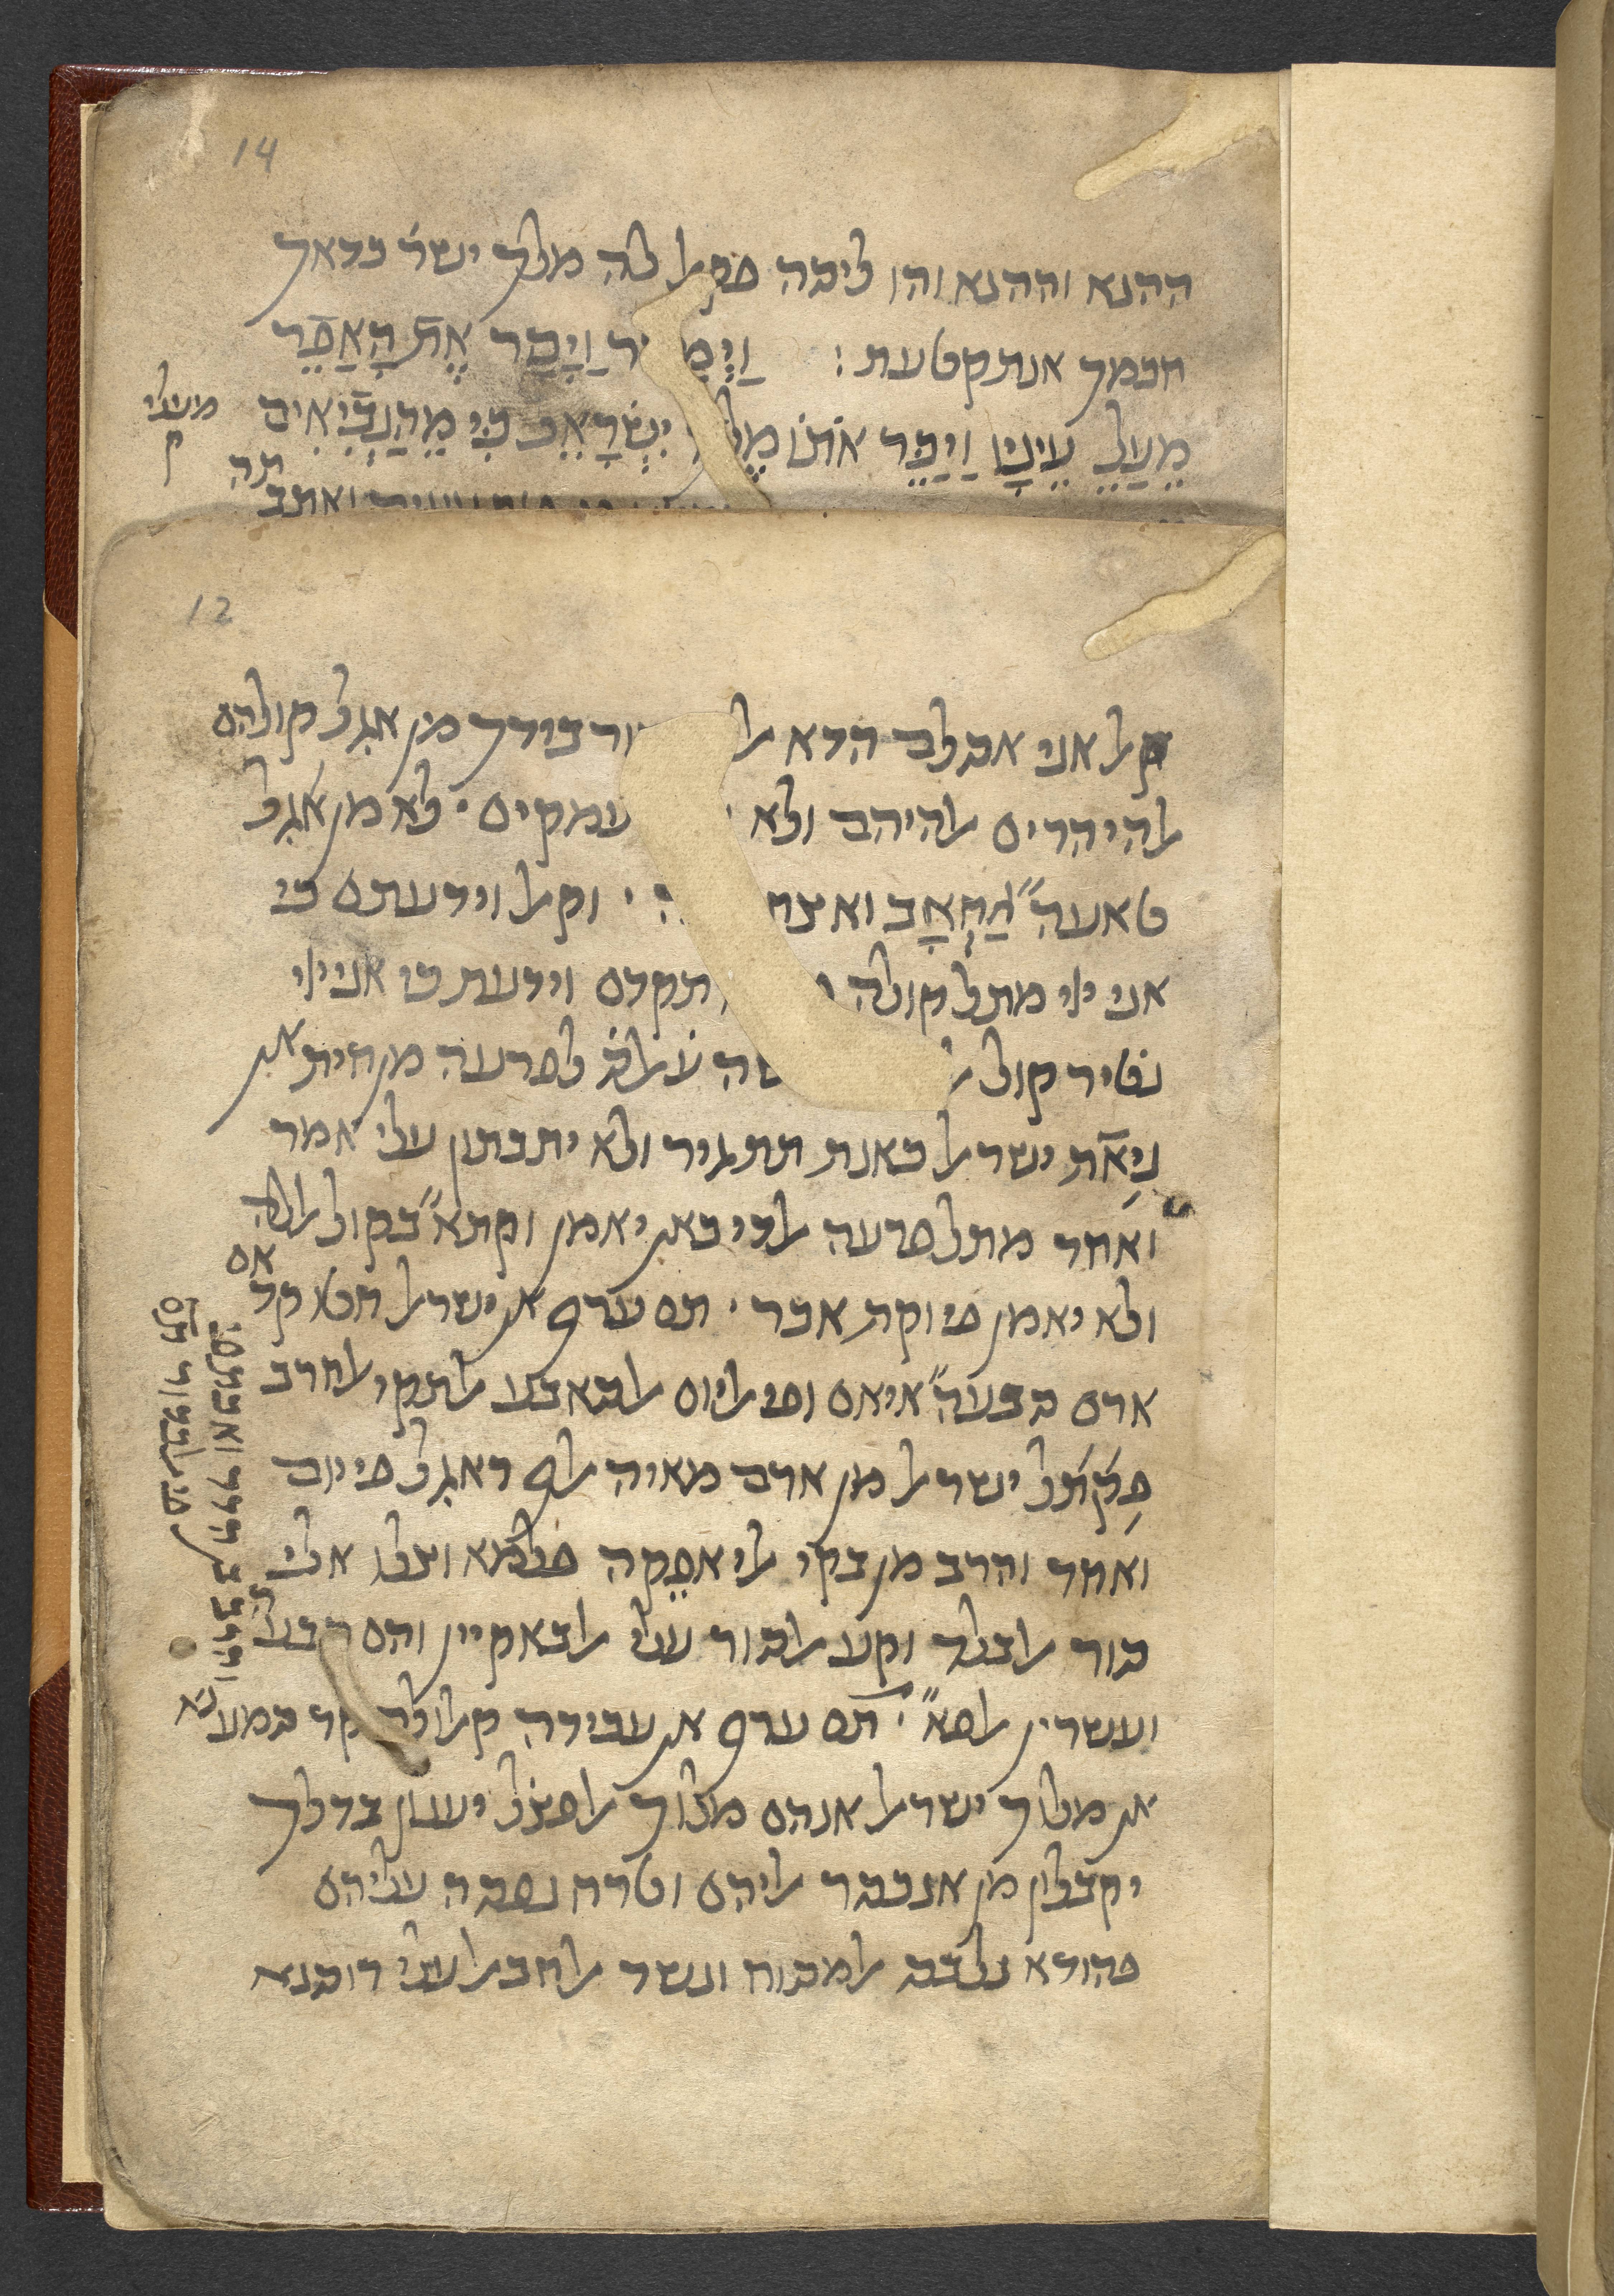 14
ההנא וההנא והו ליבה פקאל לה מלך ישר כדאך
חכמך אנת קטעת : וַיְמַ ר וַיָּסַר אֶת הָאֲפֵר
מֵעַלֵ עֵינָיו וַיַּכֵּר אֹתוֹ מֶלֶ יִשְׂרָאֵל כִּי מֵהַנְּבִיאִים
מעלי
ק
12
קאל אני אגלב הדא בידך מן אגל קולהם
אלהי הרים אלהיהם ולא עמקים · לא מן אגל
טאעה״ אַחְאָב ואצח · וקאל וידעתם כי
אני ייי מתל קולה תקדם וידעת כי אני ייי
נטיר קול שה ע׳אלס׳ לפרעה מן חית אן
נִיאֹת ישראל כאנת תתגיר ולא יתבתון עלי אמר
ואחד מתל פרעה אלדי כאן יאמן וקתא״ בקול אללה
ולא יאמן פי וקת אכר · תם ערף אן ישראל חטו קד
אם
ארם סבעה״ איאם ופי אליום אלסאבע אלתקי אלחרב
פַקַתַל ישראל מן ארם מאיה אלף ראגל פי יום
ואחד והרב מן בקי אלי אפֵקה פלמא וצלו אלי
סור אלבלד וקע אלסור עלי אלבאקיין והם סבעה
ועשרין אלפא״ · תם ערף אן עבידה קאלו לה קד סמענא
אן מלוך ישראל אנהם מלוך אלפצל יענון בדלך
יקבלון מן אנכסר אליהם וטרח נפסה עליהם
פהודא נלבס אלמסוח ונשד אלחבאל עלי רוסנא